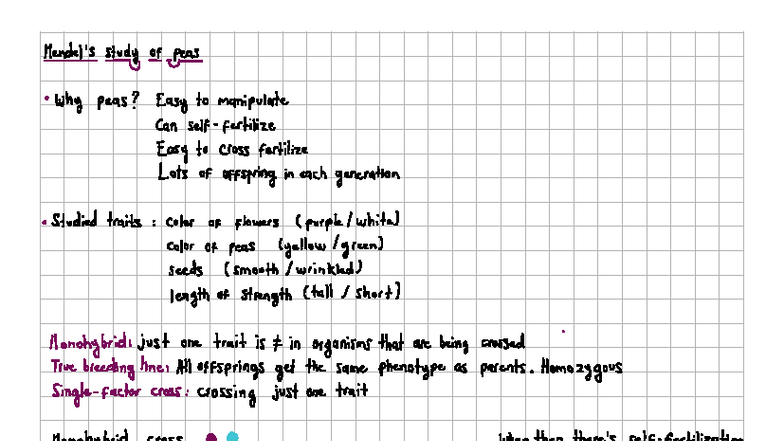 Mendel's study of peas
• Why peas? Easy to manipulate
Can self-fertilize
Easy to cross fertilize
Lots of offspring in each generation
• Studied traits : color of flowers (purple/white)
color of peas (yellow/green)
seeds (smooth/wrinkled)
length of strength (tall / short)
Monohybrid: just one trait is ≠ in organisms that are being crossed
True breeding line: All offsprings get the same phenotype as parents. Homozygous
Single-factor cross: crossing just one trait
Monohybrid cross
when then there's self-fertilization